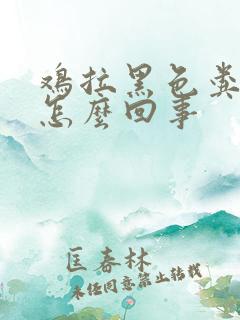 鸡拉黑色粪
怎麽回事
匡春林
未经同意禁止转载